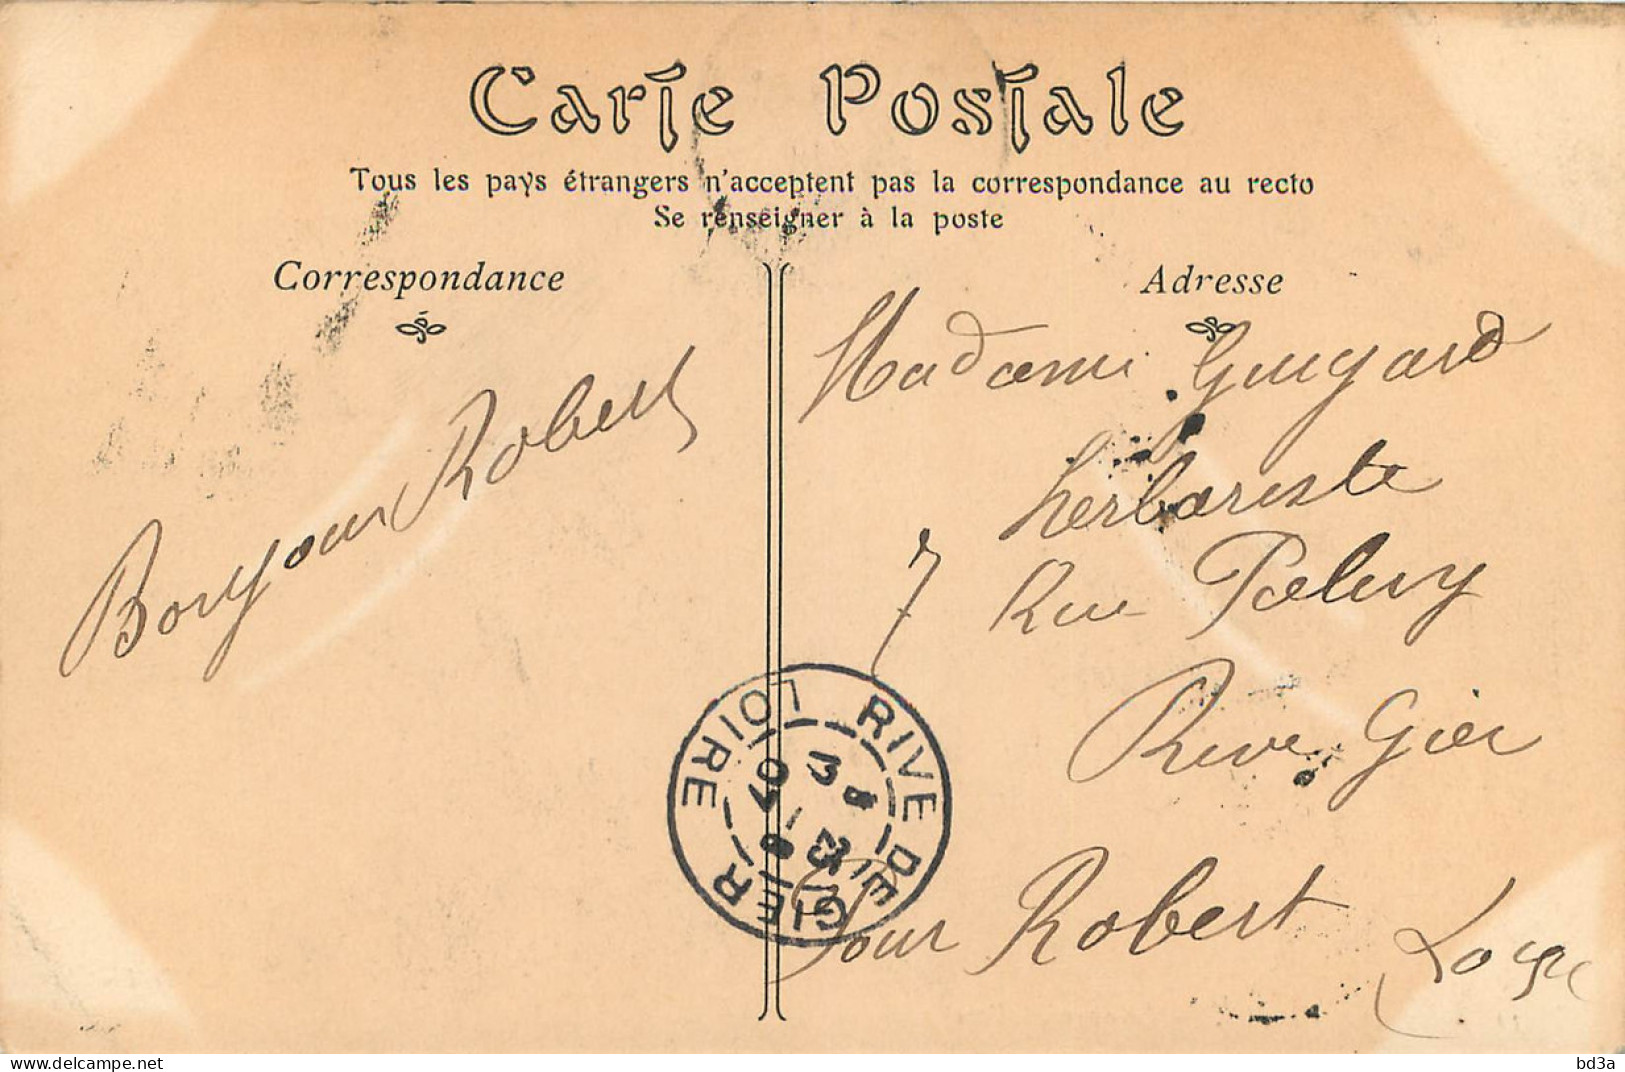 Carte Postale
Tous les pays étrangers n'acceptent pas la correspondance au recto
Se renseigner à la poste
Correspondance
Adresse
Bonjour Robert
Madame Guigard
herboriste
7 Rue Paluy
Rive Gier
Pour Robert
Loire
RIVE DE GIER
LOIRE
bd3a